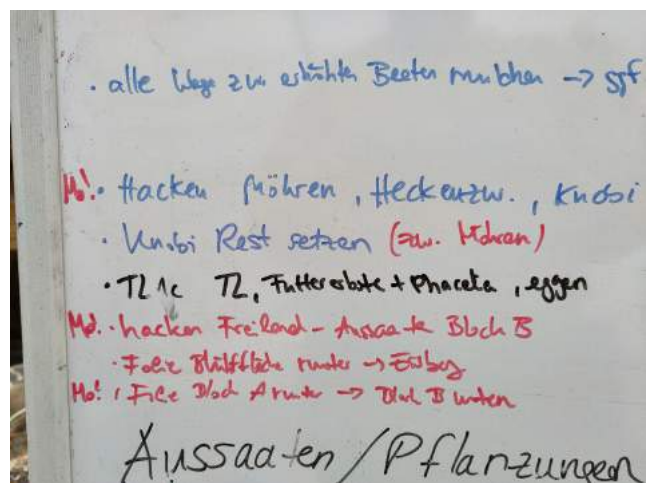 · alle Wege zw. erhöhten Beeten mulchen →
Mo! · Hacken Möhren, Heckenzw., Knobi
· Knobi Rest setzen (zw. Möhren)
· TL 1c TL, Futtererbse + Phacelia, eggen
Mo! · hacken Freiland - Aussaate Block B
· Folie Blühfläche runter →
Mo! · Folie Block A runter → Block B
Aussaaten / Pflanzungen